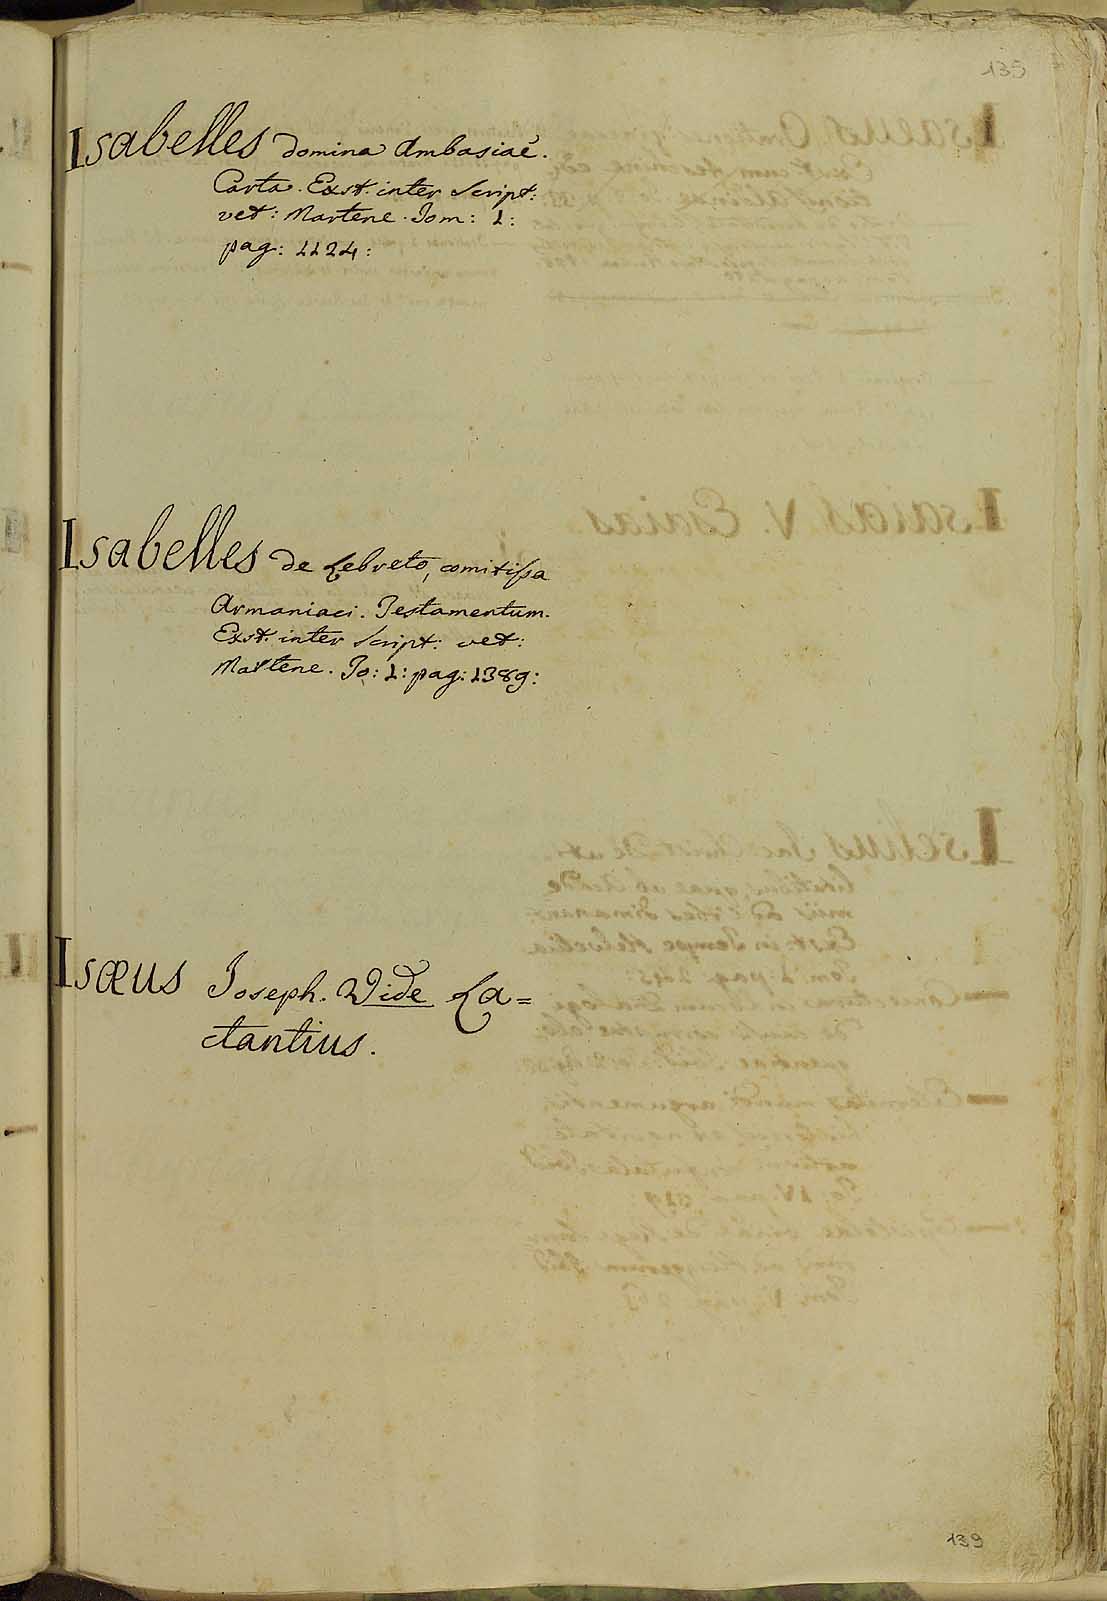 135
Isabelles Domina Ambasiae.
Carta. Exst. inter Script:
vet: Martene. Tom: 1:
pag: 1124:
Isabelles de Lebreto, comitissa
Armaniaci. Testamentum.
Exst. inter Script: vet:
Martene. To: 1: pag: 1389:
Isæus Joseph. Vide La=
ctantius.
139